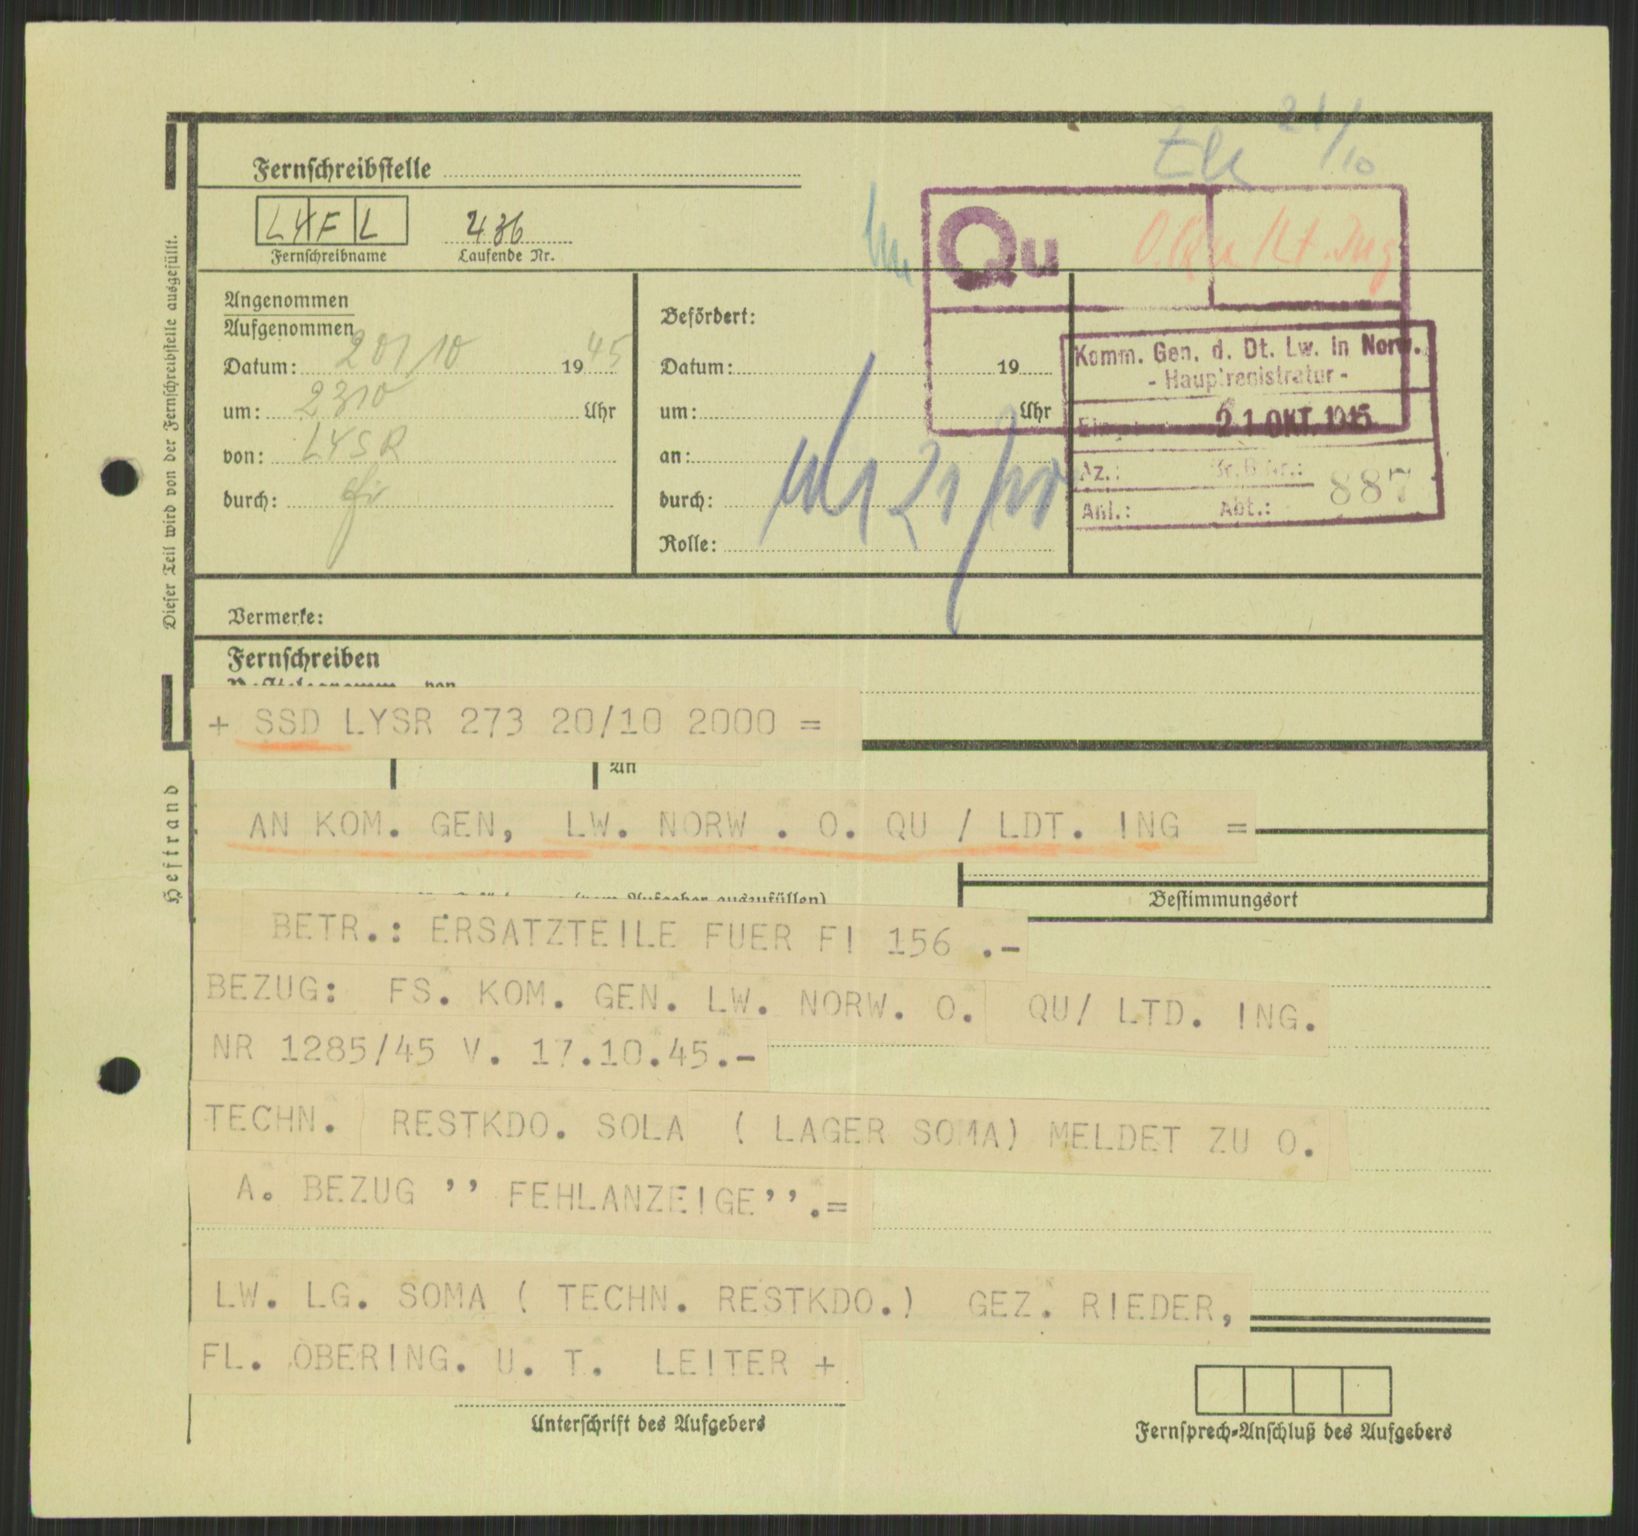 21/10
Fernschreibstelle
L Y F L
436
Fernschreibname
Laufende Nr.
Qu
O.Qu/Lt.Ing
Angenommen
Aufgenommen
Datum: 20/10 1945
um: 2310 Uhr
von: LYSR
durch:
Befördert:
Datum: 19
um: Uhr
an:
durch:
Rolle:
21/10
Komm. Gen. d. Dt. Lw. in Norw.
- Hauptregistratur -
21 OKT. 1945
Az.: Br.B.Nr.: 887
Anl.: Abt.:
Dieser Teil wird von der Fernschreibstelle ausgefüllt.
Vermerke:
Fernschreiben
von
+ SSD LYSR 273 20/10 2000 =
An
AN KOM. GEN, LW. NORW . O. QU / LDT. ING =
Heftrand
(vom Aufgeber auszufüllen)
Bestimmungsort
BETR.: ERSATZTEILE FUER FI 156 .-
BEZUG: FS. KOM. GEN. LW. NORW. O. QU/ LTD. ING.
NR 1285/45 V. 17.10.45.-
TECHN. RESTKDO. SOLA ( LAGER SOMA) MELDET ZU O.
A. BEZUG '' FEHLANZEIGE''.=
LW. LG. SOMA ( TECHN. RESTKDO.) GEZ. RIEDER,
FL. OBERING. U. T. LEITER +
Unterschrift des Aufgebers
Fernsprech-Anschluß des Aufgebers